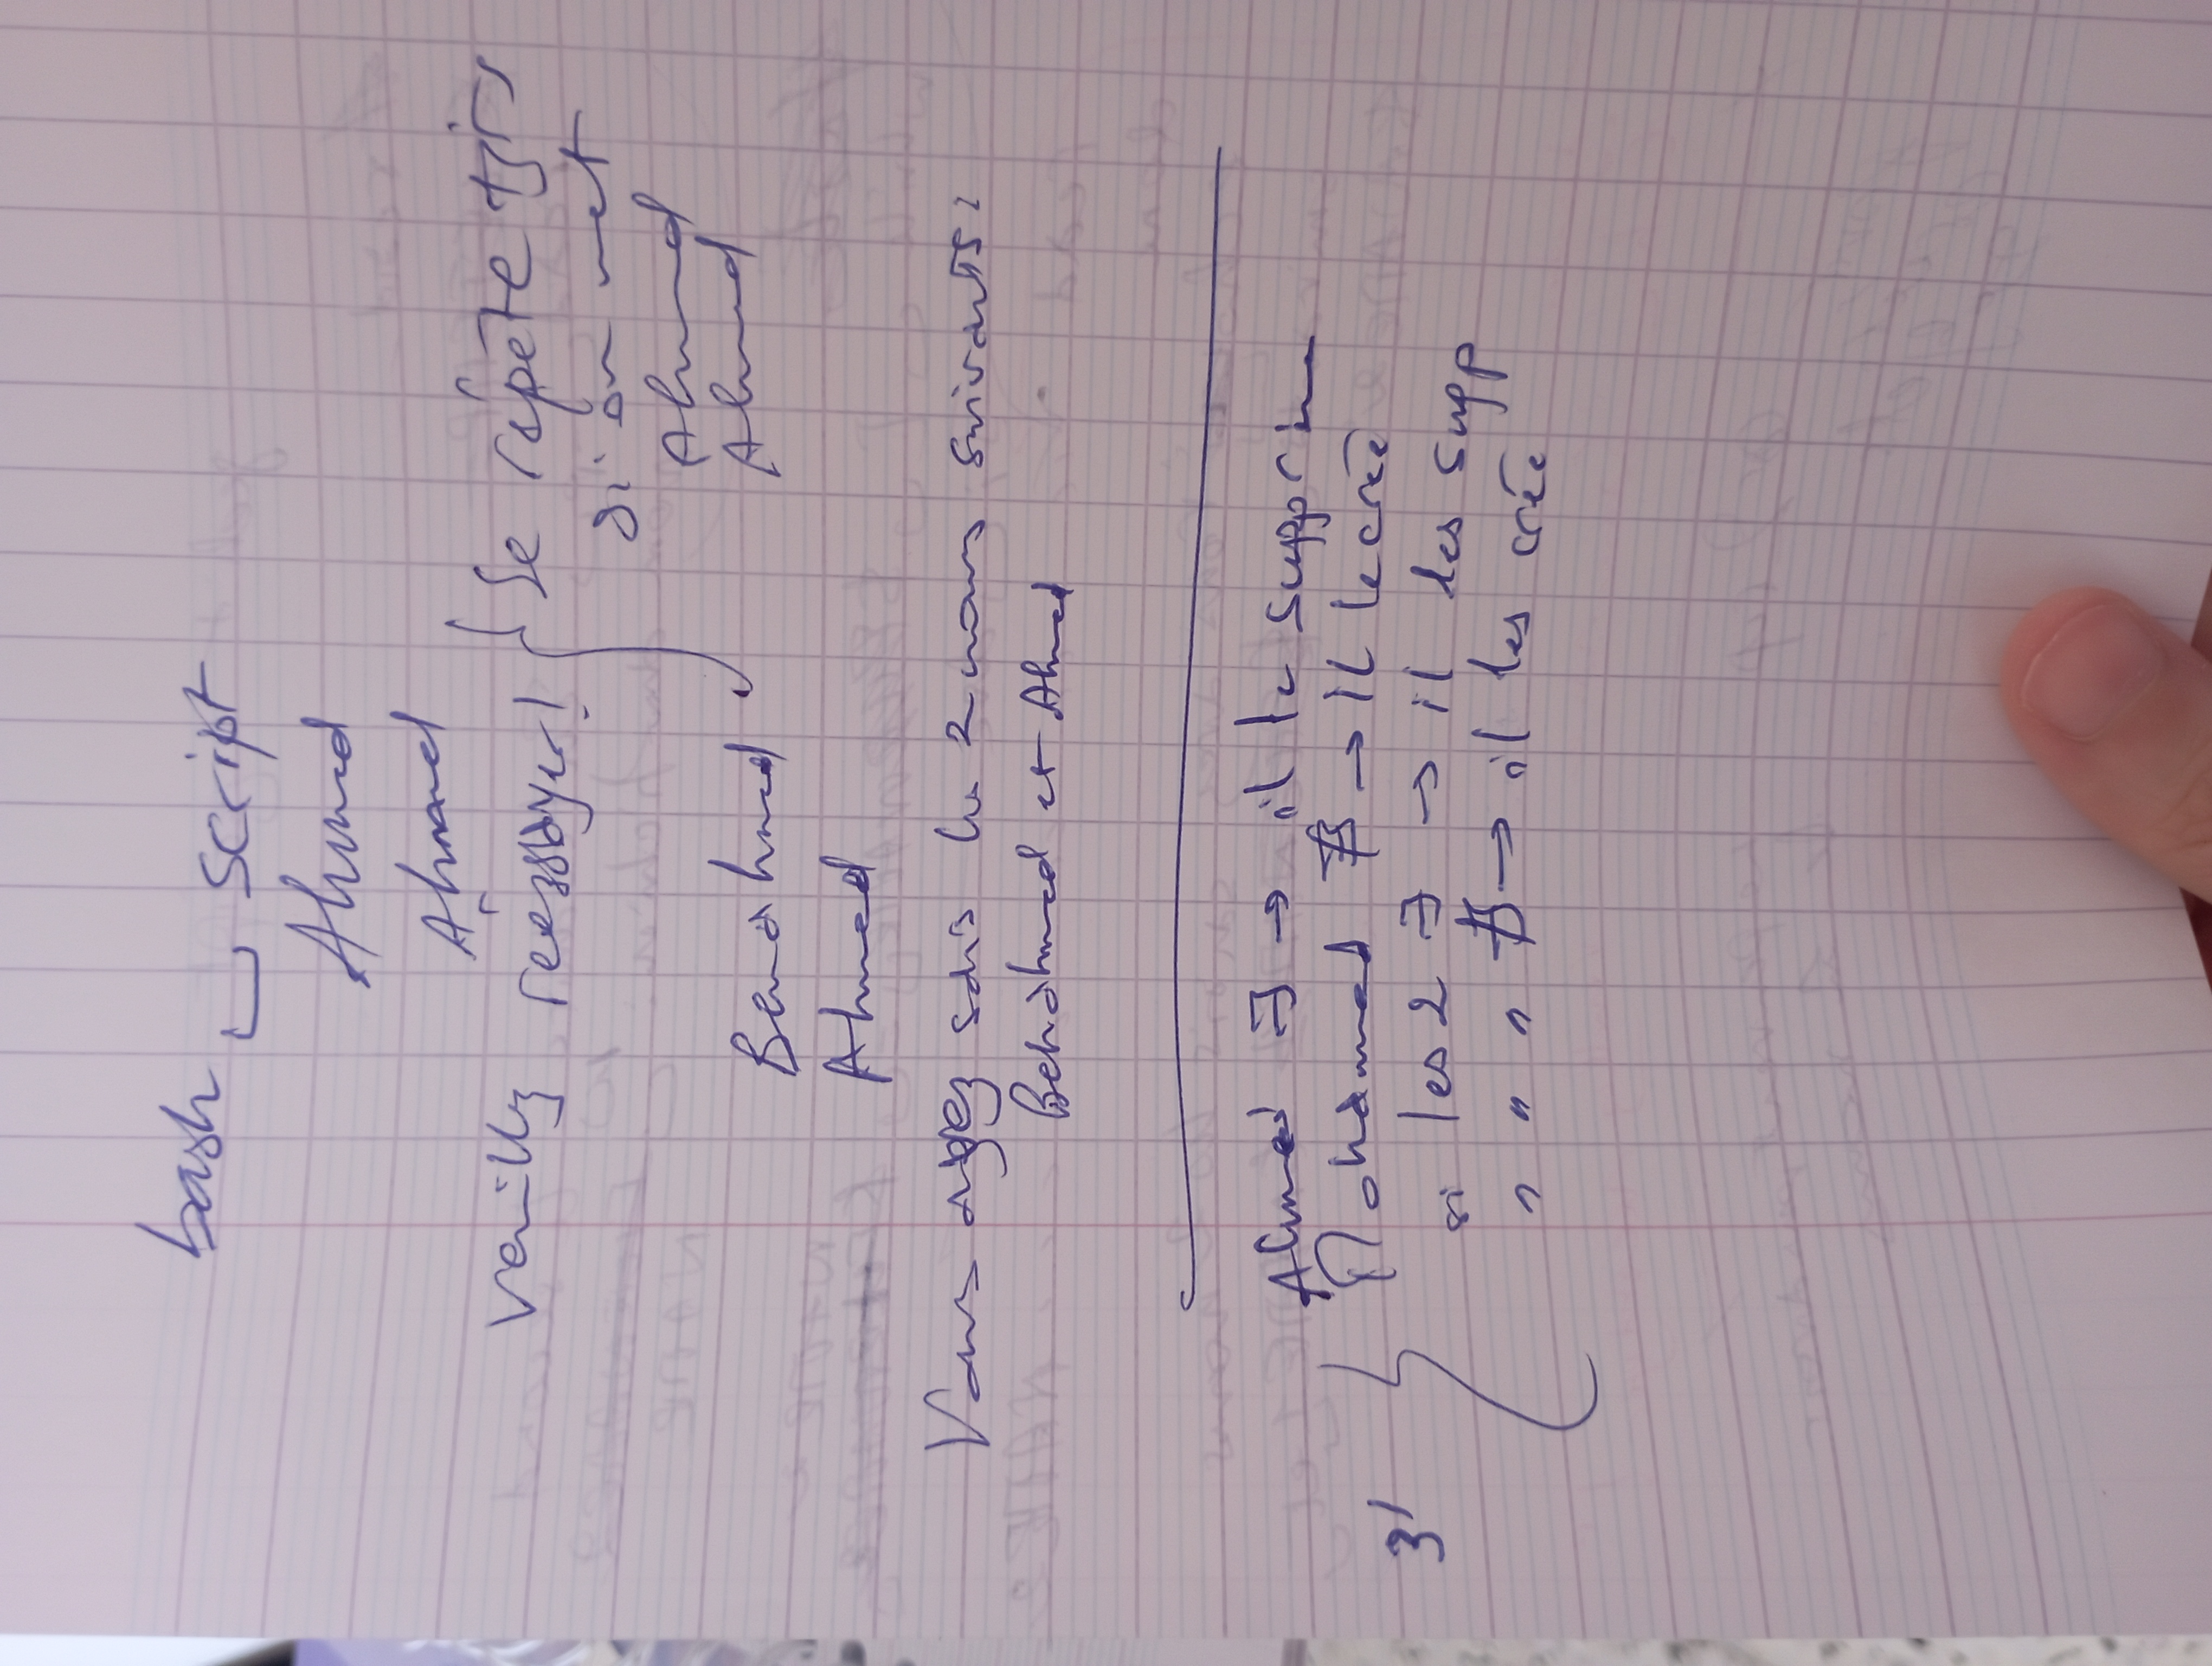 bash ␣ script
Ahmed
Ahmed
Veuillez réessayer !
Se répète tjrs
si on met
Ahmed
Ahmed
Benahmed
Ahmed
Vous avez sais les 2 noms suivants :
Benahmed et Ahmed
Ahmed ∃ → il le supprime
3'
Mohammed ∄ → il le crée
si les 2 ∃ → il les supp
" " " ∄ → il les crée